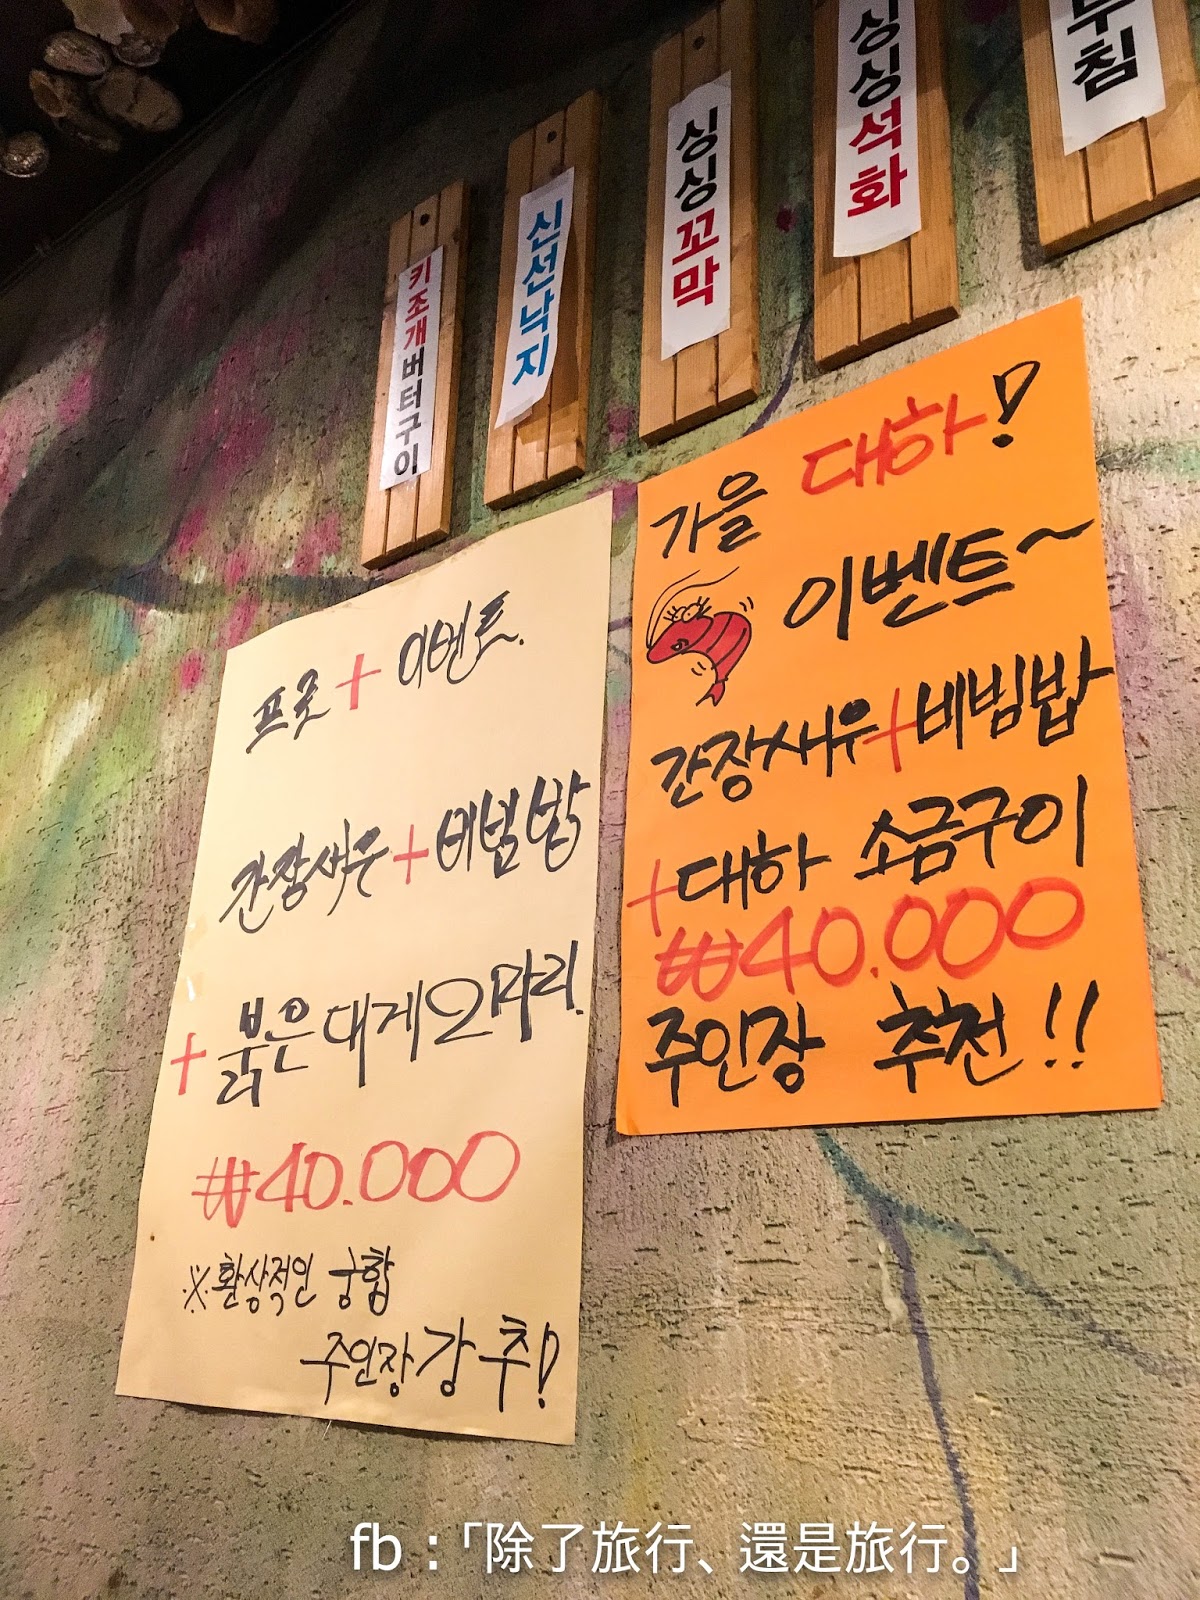 키조개버터구이
신선낙지
싱싱꼬막
싱싱석화
무침
가을 대하!
이벤트~
간장새우+비빔밥
+대하 소금구이
₩40.000
주인장 추천!!
+ 이벤트.
간장새우+비빔밥
+붉은대게2마리.
₩40.000
※환상적인 궁합
주인장강추!
fb：「除了旅行、還是旅行。」